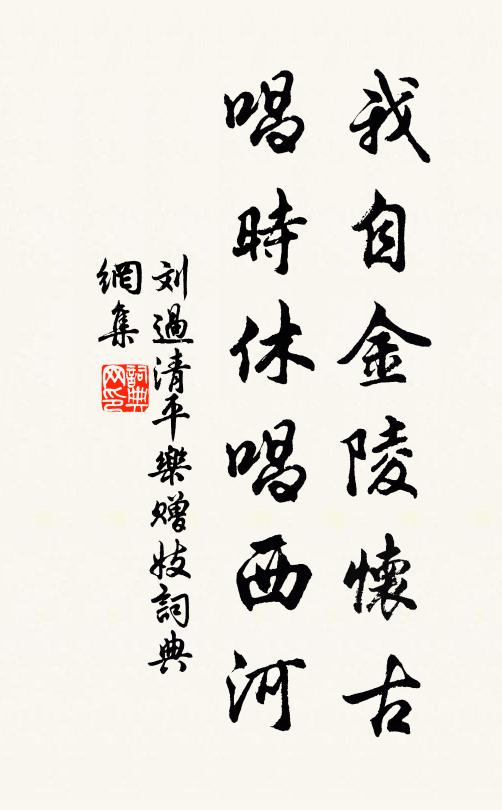 我自金陵懷古
唱時休唱西河
刘過清平樂贈妓詞典
網集
詞典网印